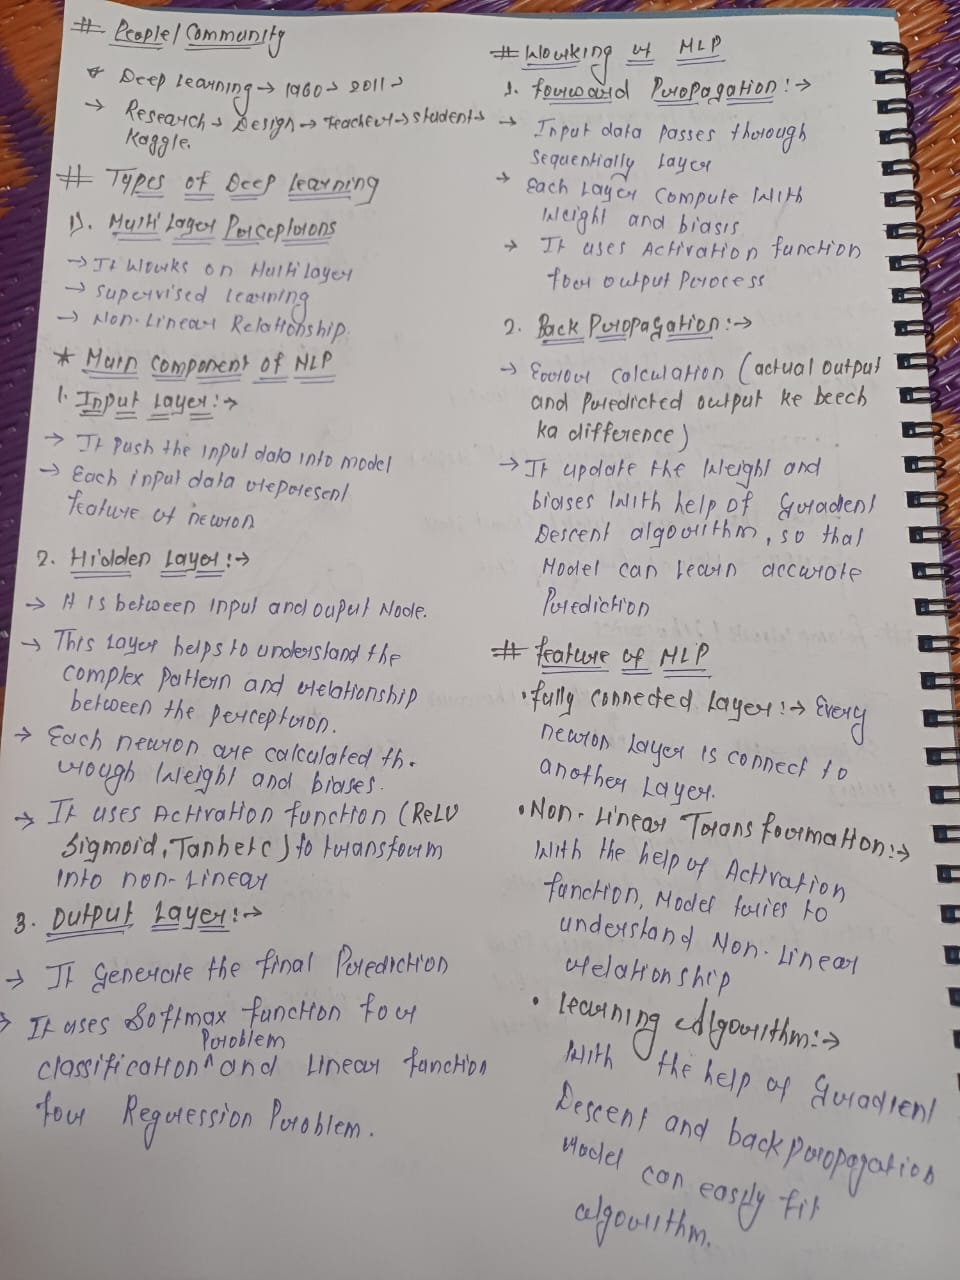 # People/Community
* Deep Learning → 1960 → 2011 →
→ Research → Design → Teacher → Students
Kaggle.
# Types of Deep Learning
1). Multi Layer Perceptrons
→ It works on Multilayer
→ Supervised Learning
→ Non-Linear Relationship.
* Main Component of MLP
1. Input Layer :→
→ It push the input data into model
→ Each input data represent
feature of neuron
2. Hidden Layer :→
→ It is between input and ouput Node.
→ This Layer helps to understand the
complex Pattern and relationship
between the perceptron.
→ Each neuron are calculated th-
rough Weight and biases.
→ It uses Activation function (ReLU
Sigmoid, Tanh etc) to transform
into non-Linear
3. Output Layer :→
→ It Generate the final Prediction
→ It uses Softmax function for
Problem
classification ^ and Linear function
for Regression Problem.
# Working of MLP
1. Forward Propagation :→
→ Input data passes thorough
Sequentially Layer
→ Each Layer compute With
Weight and biasis
→ It uses Activation function
for output Process
2. Back Propagation :→
→ Error Calculation (actual output
and Predicted output ke beech
ka difference)
→ It update the Weight and
biases With help of Gradient
Descent algorithm, so that
Model can learn accurate
Prediction
# feature of MLP
• fully connected Layer :→ Every
neuron Layer is connect to
another Layer.
• Non-Linear Transformation :→
With the help of Activation
function, Model tries to
understand Non-Linear
relationship
• Learning Algorithm :→
With the help of Gradient
Descent and backpropagation
Model can easily fit
algorithm.